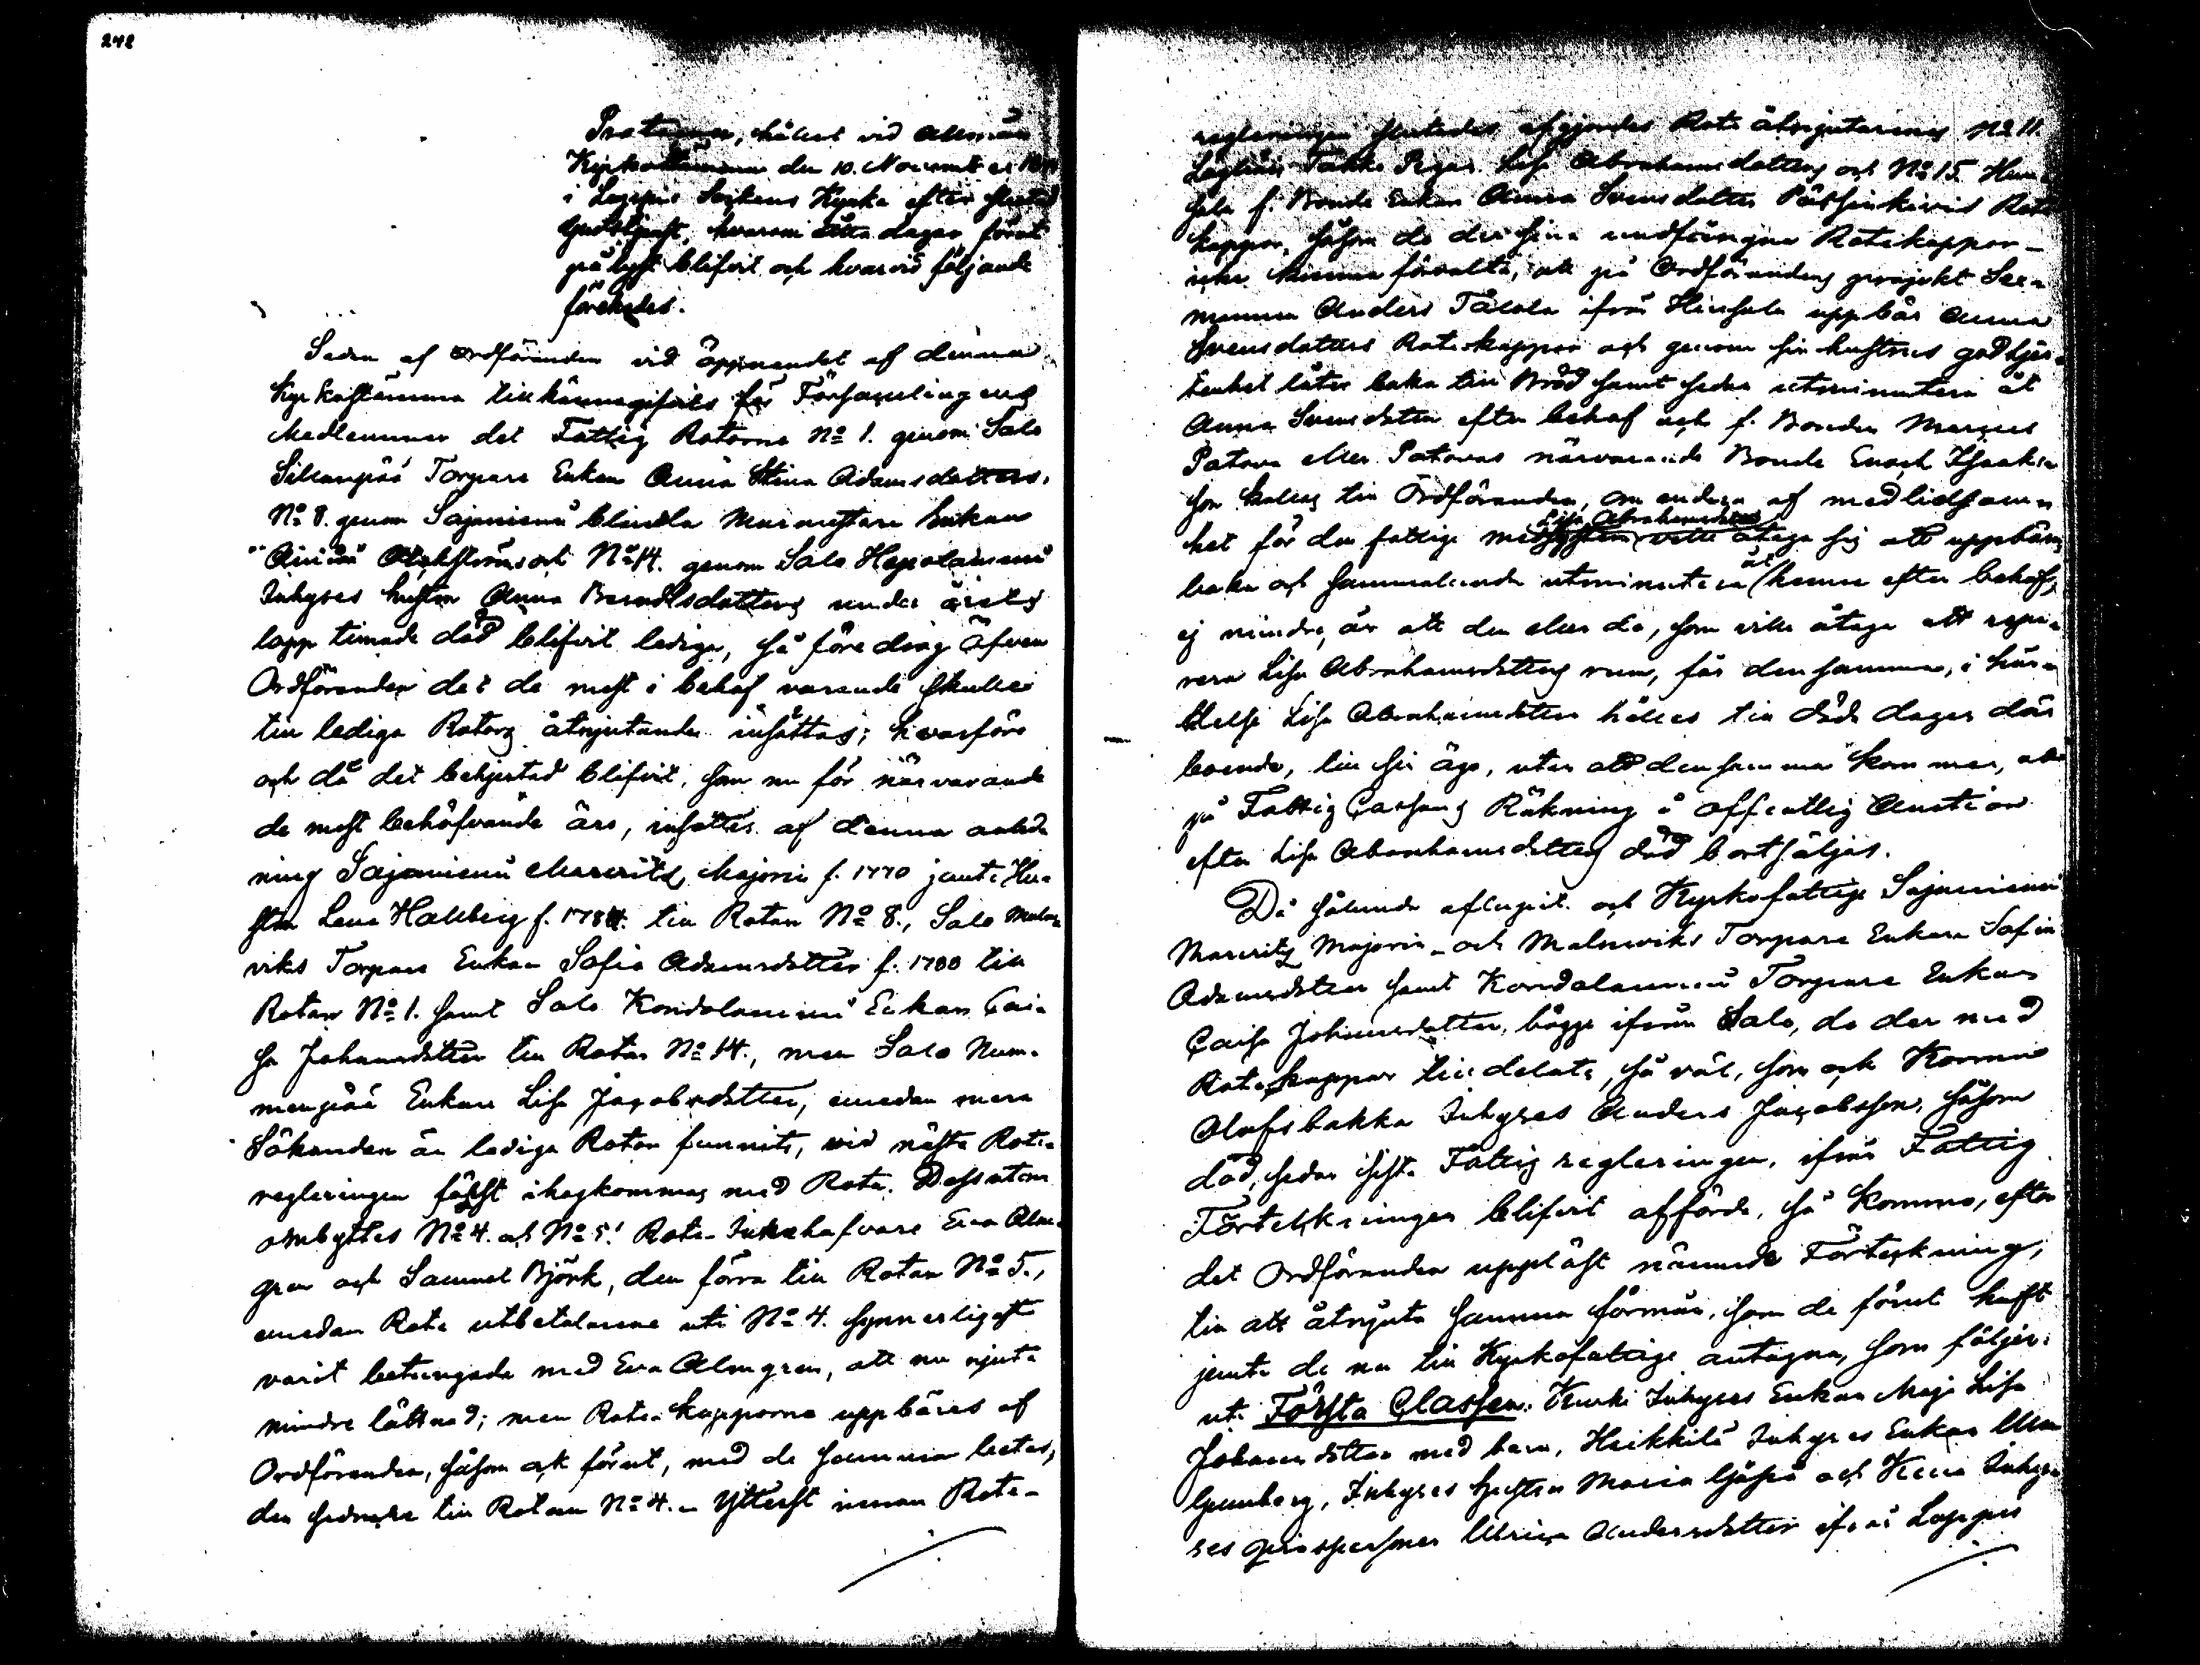 242
Protocoll, hållet vid Allmän
Kyrkostämma den 10. November
i Loppis Sockens Kyrka efter slutad
Gudstjenst, hvarom åtta dagar förut
pålyst blifvit och hvarvid följande
förehades.
Sedan af Ordföranden vid öppnandet af denna
Kyrkostämma tillkännagifvits för Församlingens
Medlemmar det Fattig Rotorna No 1. genom Salo
Sillanpää Torpare Enkan Anna Stina Adamsdotters,
No 8. genom Sajaniemi blinda Murmestare Enkan
och No 14. genom Salo Hepolaniemi
Inhyses hustru Anna Berndtsdotters under årets
lopp timade död blifvit lediga, så föredrog äfven
Ordföranden det de mest i behof varande skulle
till lediga Rotors åtnjutande insättas; hvarföre
och då det behjertad blifvit, som nu för närvarande
de mest behöfvande äro, insattes af denna anled
ning Sajaniemi Mauritz Majorin f. 1770 jemte Hu-
stru Lena Hallberg f. 1784. till Rotan No 8., Salo Malm
viks Torpare Enkan Sofia Adamsdotter f. 1788 till
Rotan No 1. samt Salo Kondolaniemi Enkan Cai-
sa Johansdotter till Rotan No 14., men Salo Num-
menpää Enkan Lisa Jacobsdotter, emedan mera
Sökanden än lediga Rotor funnits, vid nästa Rote-
regleringen först ihogkommas med Rota. Dessutom
ombyttes No 4. och No 5. Rote-Innehafvare Eva Alm-
gren och Samuel Björk, den förra till Rotan No 5.,
emedan Rote utbetalarene uti No 4. synnerligast
varit betungade med Eva Almgren, att nu njuta
mindre lättnad; men Rote-kapporna uppbäres af
Ordföranden, såsom ock förut, med de samma
den sednare till Rotan No 4. – Ytterst innan Rote-
regleringen slutades afgjordes Rote åtnjutarenes No 11.
Lisa Abrahamsdotters och No 15. Hun
sala f. Bonde Enkan Anna Svensdotter Rote
kappor, såsom de der sina undfångna Rotekappor
icke kunna förvalta, att på Ordförandens projekt
Anders Tålola ifrån Hunsala uppbär Anna
Svensdotters Rotekappor och genom sin hustrus godhjer-
tenhet låter baka till Bröd samt sedan utminutera åt
Anna Svensdotter efter behof och f. Bonden Marcus
Patova eller Patovas närvarande Bonde Enoch Isaksson
som kallas till Ordföranden, om endera af medlidsam-
het för den fattige Lisa Abrahamsdotter ville åtaga sig att uppbära,
baka och sammalunda utminutera åt henne efter behof,
ej mindre, än att den eller de, som ville åtaga att repa-
rera Lisa Abrahamsdotters rum, får densamma, i hän-
delse Lisa Abrahamsdotter hålles till döde dagar där
boende, till sin ägo, utan att densamma kommer, att
på Fattig Cassans Räkning å offentlig Auction
efter Lisa Abrahamsdotters död bortsäljas.
Då sålunda aflupit. och Kyrkofattige Sajaniemi
Mauritz Majorin – och Malmviks Torpare Enkan Sofia
Adamsdotter samt Kondolaniemi Torpare Enkan
Caisa Johansdotter, bägge ifrån Salo, de der med
Rotekappor tilldelats, så väl, som och Kormu
Olofsbakka Inhyses Anders Jacobsson, såsom
död, sedan sista Fattig regleringen, ifrån Fattig
Förteckningen blifvit afförde, så komma, efter
det Ordföranden uppläst nämnde Förteckning,
till att åtnjuta samma förmån, som de förut haft
jemte de nu till Kyrkofattige antagna, som följer:
uti Första Classen. Kurki Inhyses Enkan Maja Lisa
Johansdotter med barn, Heikkilä Inhyses Enkan Ulla
Grunberg, Inhyses hustru Maria och Inhy
ses Ulrica Andersdotter ifrån Loppis